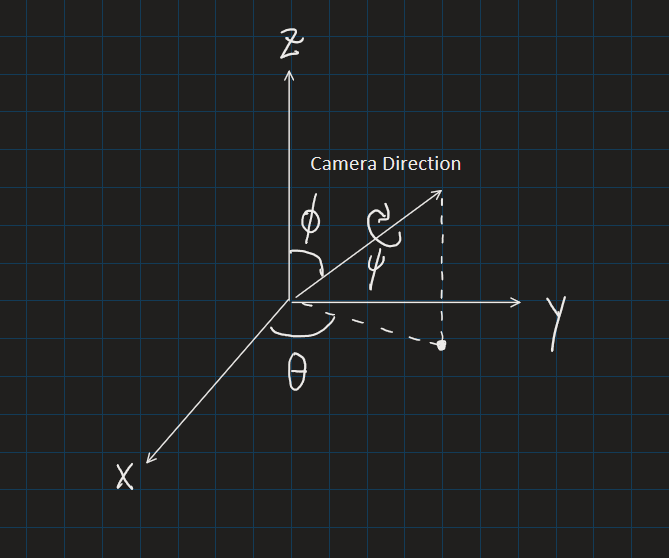 Z
Camera Direction
ϕ
ψ
Y
θ
X